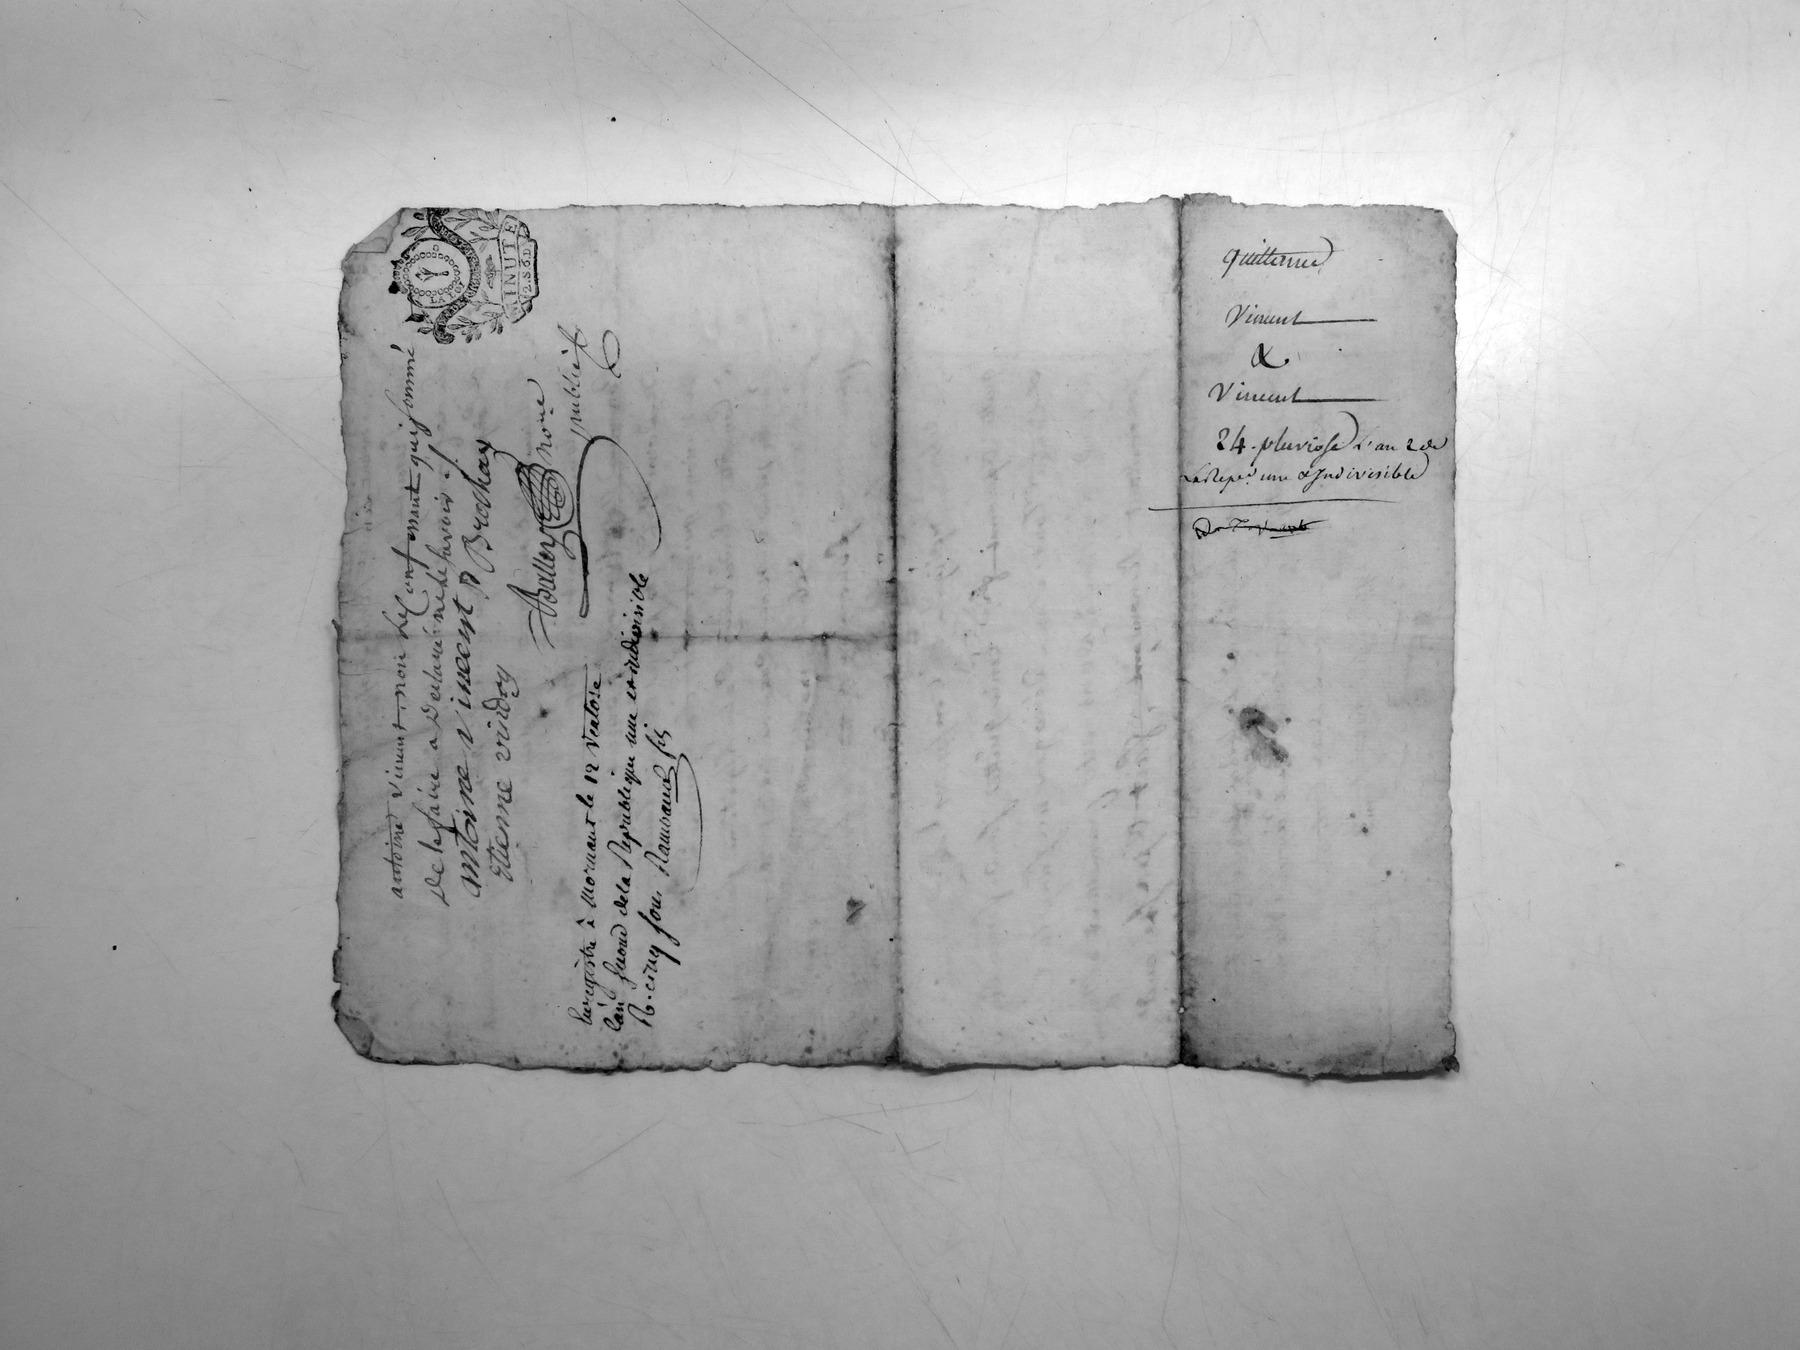 LA LOI
MINUTE
2.S.6.D
antoine Vincent non le Confessant qui sommé
de le faire a Declaré ne le savoir ./.
antoine vincent P Brochay
Etienne virdoy
no.re
publicq
Enregistré à Mornant le 12 Ventose
l'an second dela Republique une et indivisible
R. cinq sous Rambaud fils
quittance
Vincent
&
Vincent
24. pluviose l'an 2 de
La Repe. une & Indivisible